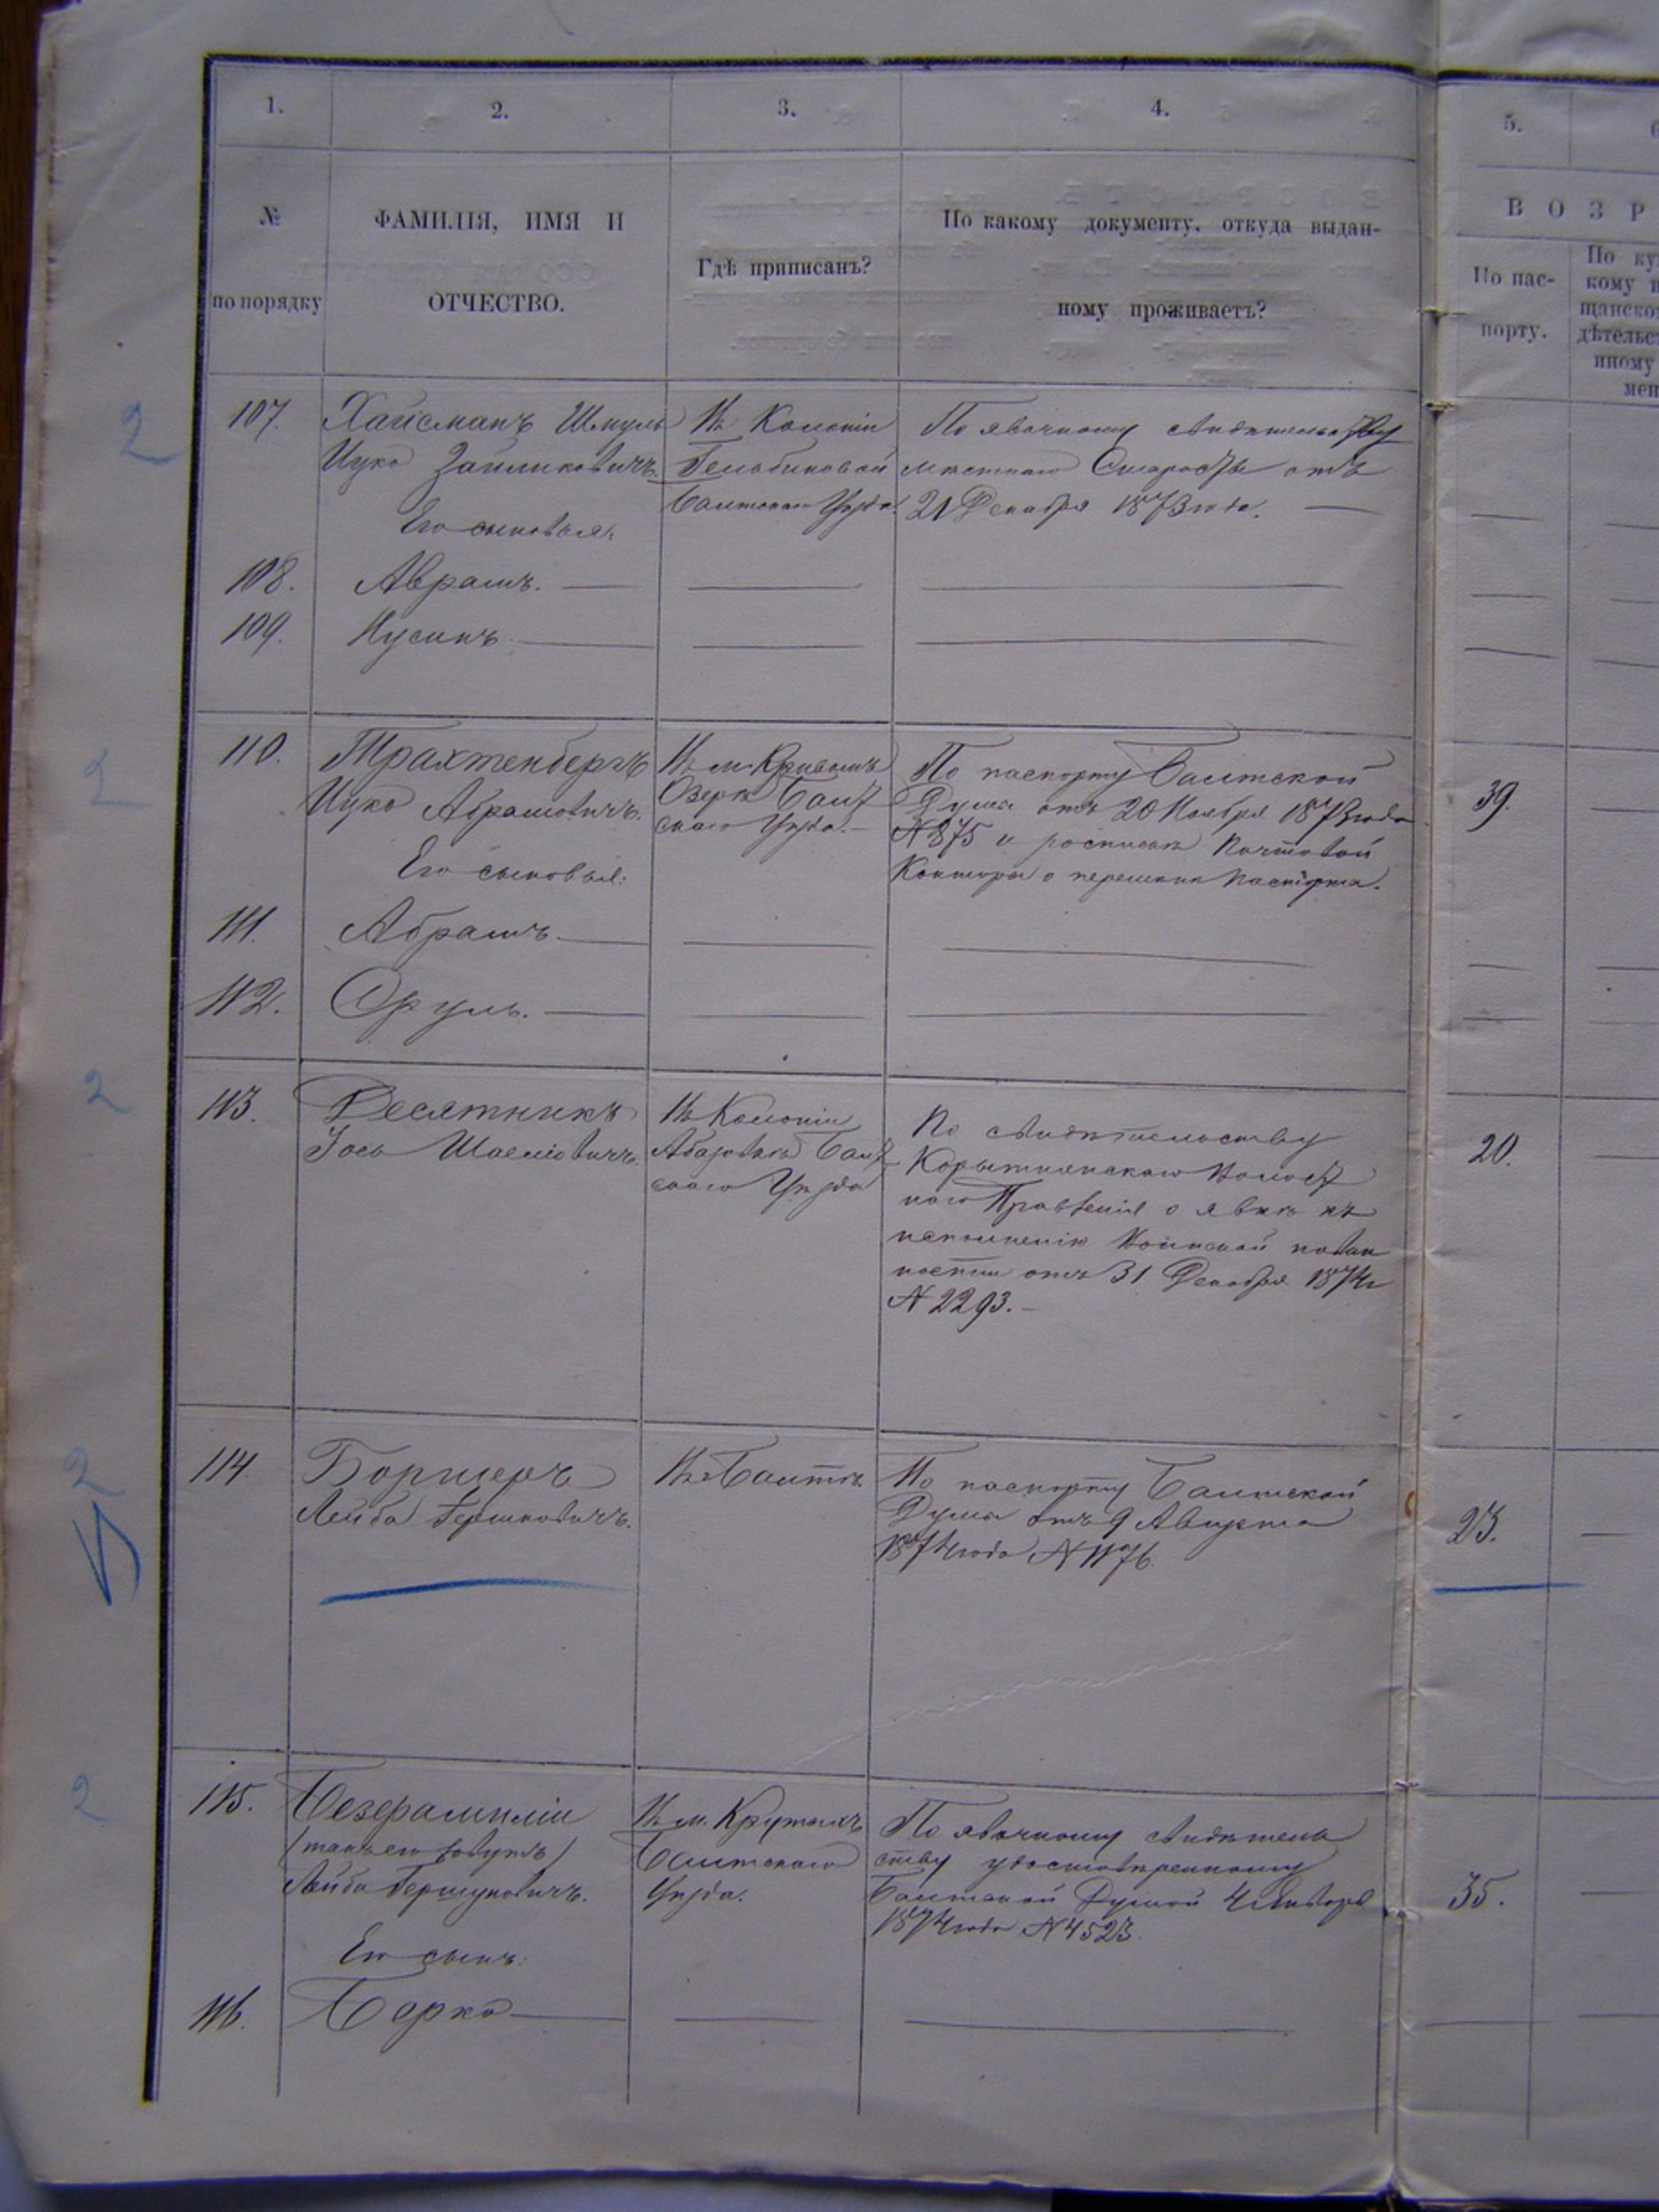 1.
2.
3.
4.
5.
№
по порядку
ФАМИЛІЯ, ИМЯ И
ОТЧЕСТВО.
Гдѣ приписанъ?
По какому документу, откуда выдан-
ному проживаетъ?
ВОЗР
По пас-
порту.
По ку
кому
щанско
дѣтельс
иному
мен
2
107.
Хайсманъ Шмуль
Ицко Зайликовичъ.
Его сыновья:
Въ Колоніи
Балтскаго Уѣзда.
По явочному свидѣтельству
мѣстнаго Старосты отъ
21 Декабря 1873 года.
108.
Аврамъ.
109.
Нусинъ.
2
110.
Трахтенбергъ
Ицко Абрамовичъ.
Его сыновья:
Въ м. Кривомъ
Озерѣ Балт
скаго Уѣзда.
По паспорту Балтской
Думы отъ 20 Ноября 1873 года
№ 875 и росписки Почтовой
Конторы о пересылкѣ паспорта.
39.
111.
Абрамъ.
112.
Сруль.
2
113.
Десятникъ
Іось Шаеліовичъ.
Въ Колоніи
Абазовкѣ Балт
скаго Уѣзда
По свидѣтельству
Корытнянскаго Волост
наго Правленія о явкѣ къ
исполненію Воинской повин
ности отъ 31 Декабря 1874 г
№ 2293.
20.
2
114.
Боришеръ
Лейба Гершковичъ.
Въ Балтѣ.
По паспорту Балтской
Думы отъ 9 Августа
1874 года № 1176.
23.
2
115.
Безфамиліи
(такъ его зовутъ)
Лейба Бершуковичъ.
Его сынъ:
Въ м. Крутыхъ
Балтскаго
Уѣзда.
По явочному свидѣтель
ству удостовѣренному
Балтской Думой 4 Января
1874 года № 4523.
35.
116.
Берко